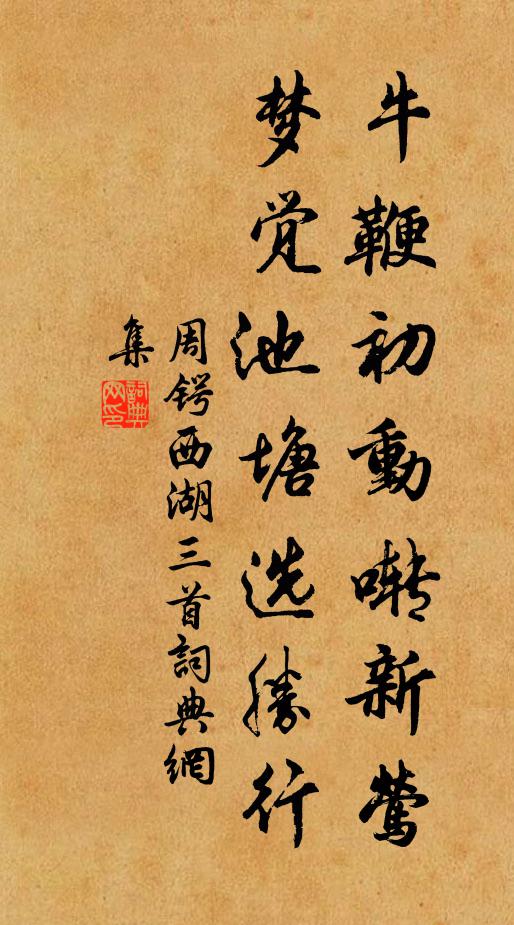 牛鞭初動啭新莺
梦觉池塘选勝行
周锷西湖三首詞典網
集
詞典
网印